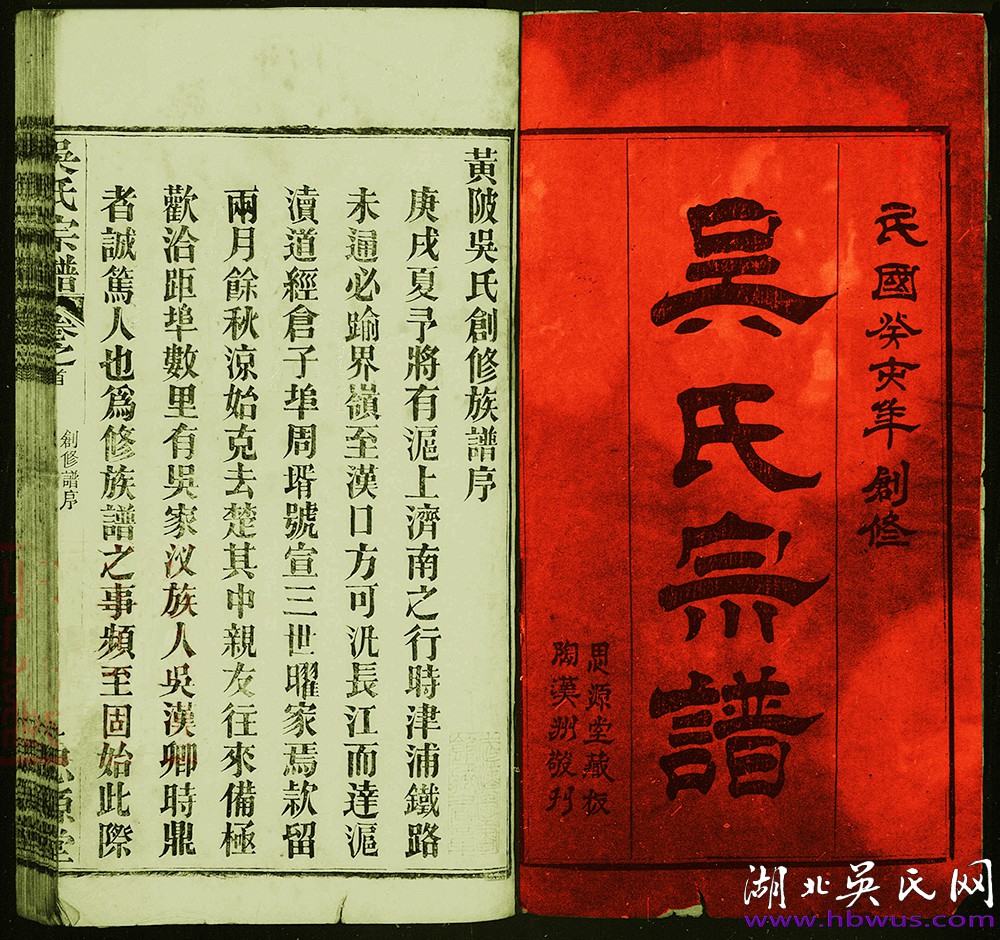 民國癸亥年創修
吳氏宗譜
思源堂藏板
陶漢洲敬刊
黃陂吳氏創修族譜序
庚戌夏予將有滬上濟南之行時津浦鐵路
未通必踰界嶺至漢口方可汎長江而達滬
瀆道經倉子埠周壻號宣三世曜家焉款留
兩月餘秋涼始克去楚其中親友往來備極
歡洽距埠數里有吳家汊族人吳漢卿時鼎
者誠篤人也爲修族譜之事頻至固始此際
吳氏宗譜 卷之首 創修譜序
湖北吳氏网
www.hbwus.com